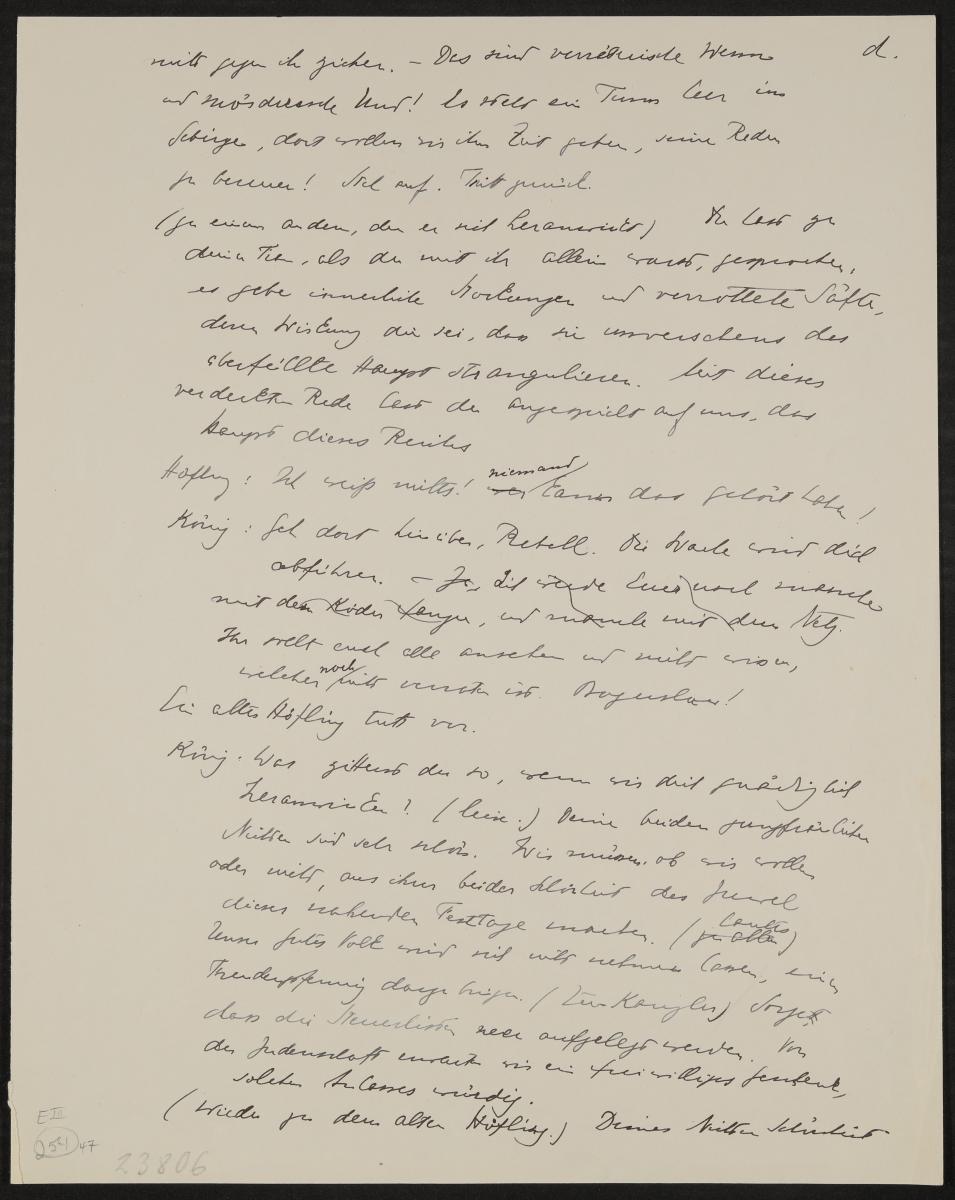 d.
nicht gegen ihn ziehen. – Das sind verräterische Wenns
und mörderische Und! Es steht ein Turm leer im
Gebirge, dort wollen wir ihm Zeit geben, seine Reden
zu bessern! Steh auf. Tritt zurück.
(zu einem andern, den er sich heranwinkt) Du hast zu
deiner Frau, als du mit ihr allein warst, gesprochen,
es gebe innerliche Stockungen und verrottete Säfte,
deren Wirkung die sei, dass sie unversehens das
überfüllte Haupt strangulieren. Mit dieser
verdeckten Rede hast du angespielt auf uns, das
Haupt dieses Reiches
Höfling: Ich weiß nichts! wer niemand kann das gehört haben!
König: Geh dort hinüber, Rebell. Die Wache wird dich
abführen. – Ja, Ich werde Euer noch manche
mit dem Köder fangen, und manche mit dem Netz.
Ihr sollt euch alle ansehen und nicht wissen,
welcher noch nicht verraten ist. Boguslaw!
Ein alter Höfling tritt vor.
König: Was zitterst du so, wenn wir dich gnädiglich
heranwinken? (leise.) Deine beiden jungfräulichen
Nichten sind sehr schön. Wir müssen, ob wir wollen
oder nicht, aus ihrer beider Schönheit das Juwel
dieser nahenden Festtage machen. (zu allen lautes)
Unser gutes Volk wird sich nicht nehmen lassen, einen
Freudenpfennig darzubringen. (Zum Kanzler) Sorget,
dass die Steuerlisten neu aufgelegt werden. Von
der Judenschaft erwarten wir ein freiwilliges Geschenk,
solchen Anlasses würdig.
(Wieder zu dem alten Höfling.) Deiner Nichten Schönheit
E III
254 47
23806